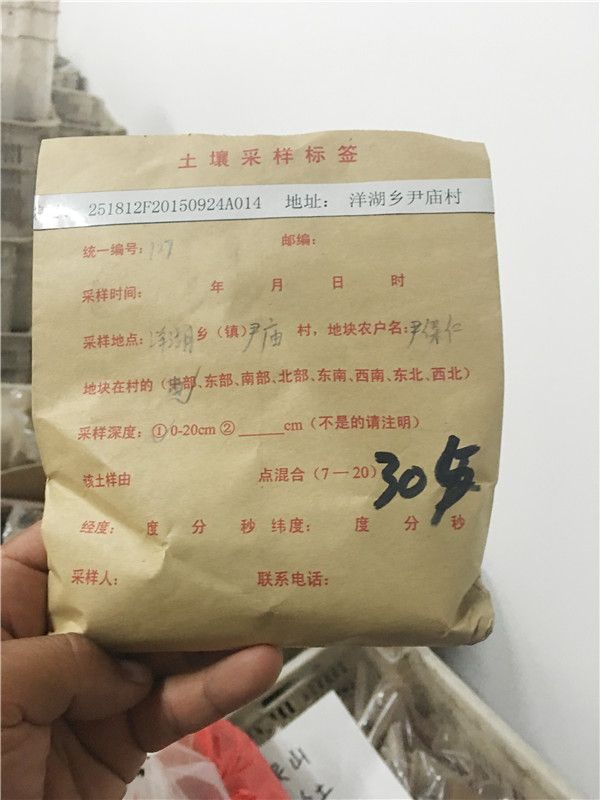 土壤采样标签
251812F20150924A014 地址： 洋湖乡尹庙村
统一编号：127 邮编：
采样时间： 年 月 日 时
采样地点：洋湖乡（镇）尹庙 村，地块农户名：尹保仁
地块在村的（中部、东部、南部、北部、东南、西南、东北、西北）
采样深度：①0-20cm ②______cm（不是的请注明）
该土样由 点混合（7—20）
30兵
经度： 度 分 秒 纬度： 度 分 秒
采样人： 联系电话：
山
土